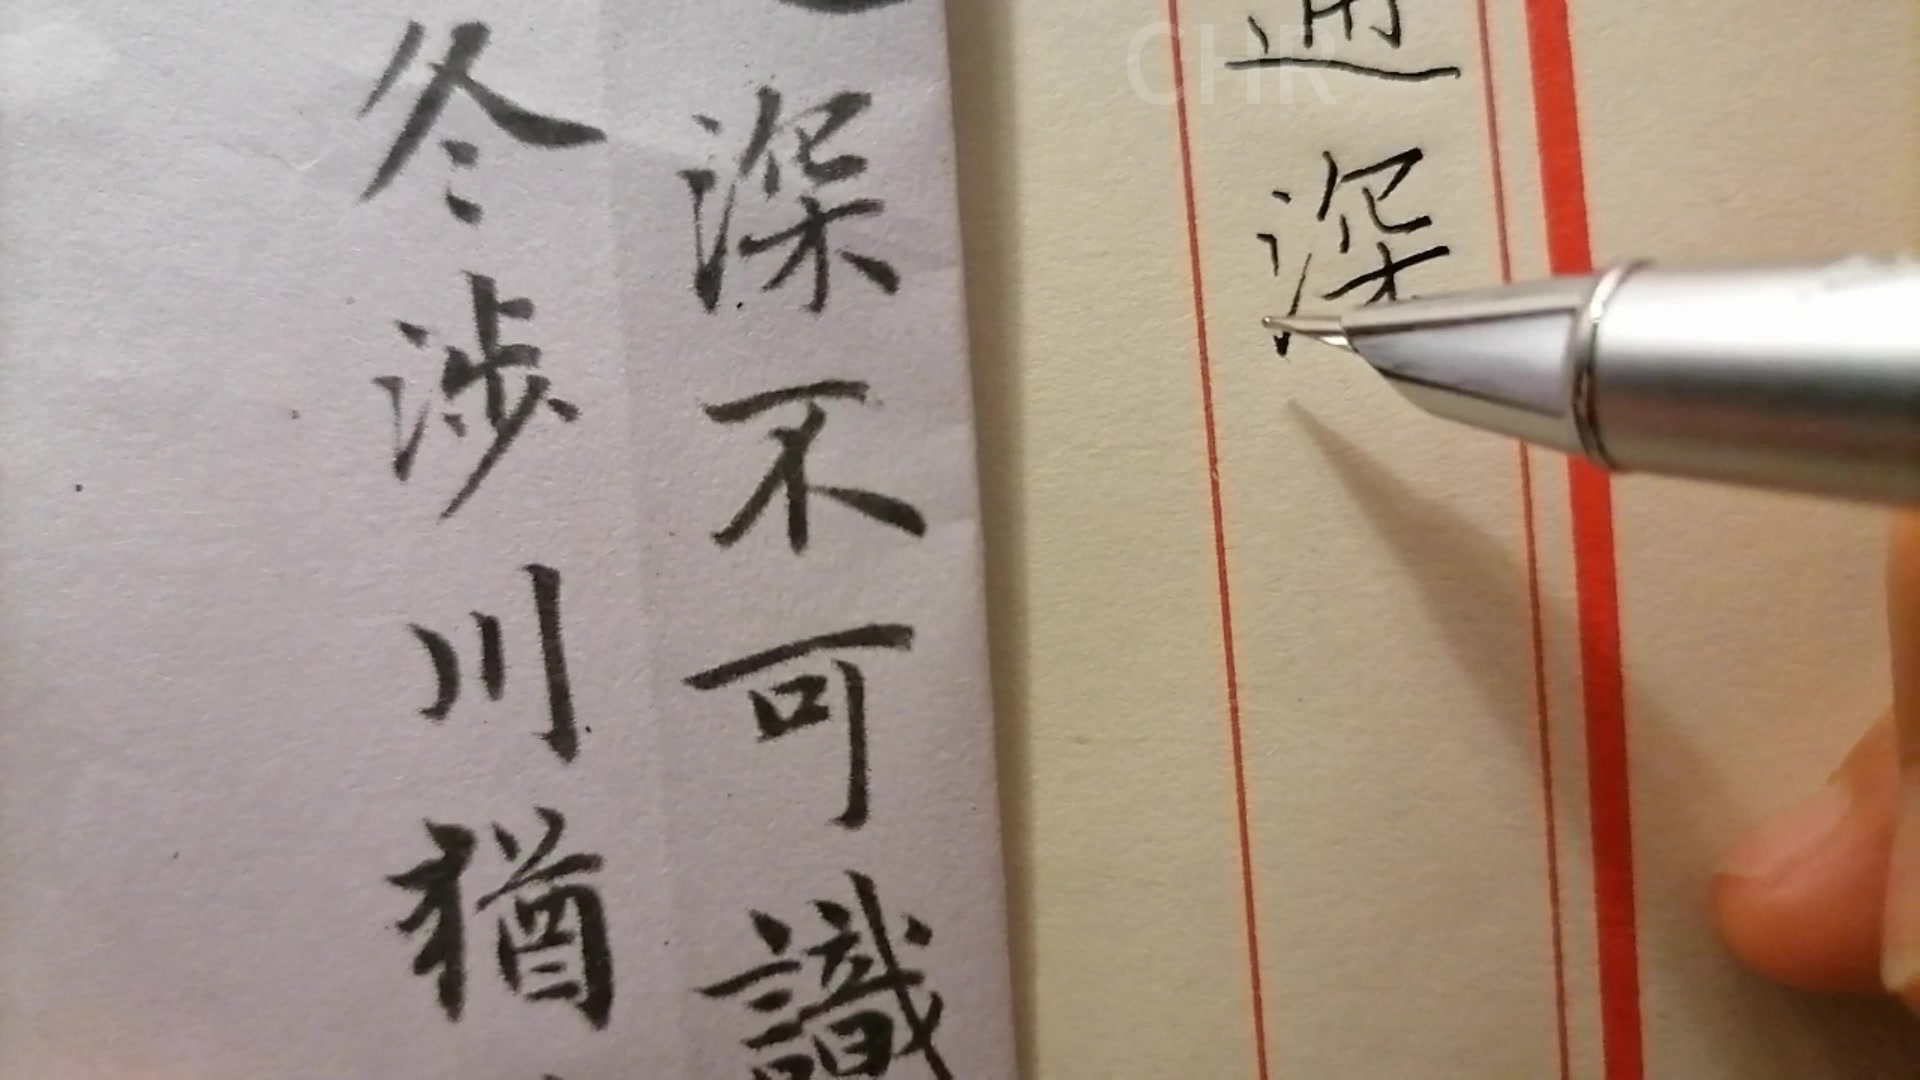 通
深
深不可識
冬涉川猶
CHR